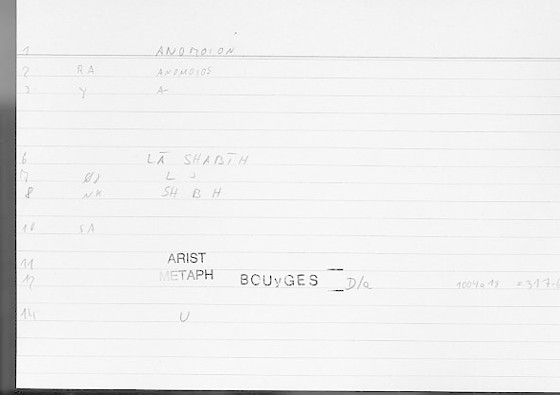 1 ANOMOION
2 RA ANOMOIOS
3 y A-
6 LĀ SHABĪH
7 L
8 NK SH B H
10 SA
11 ARIST
12 METAPH BOUyGES D/a 1004a18
14 U